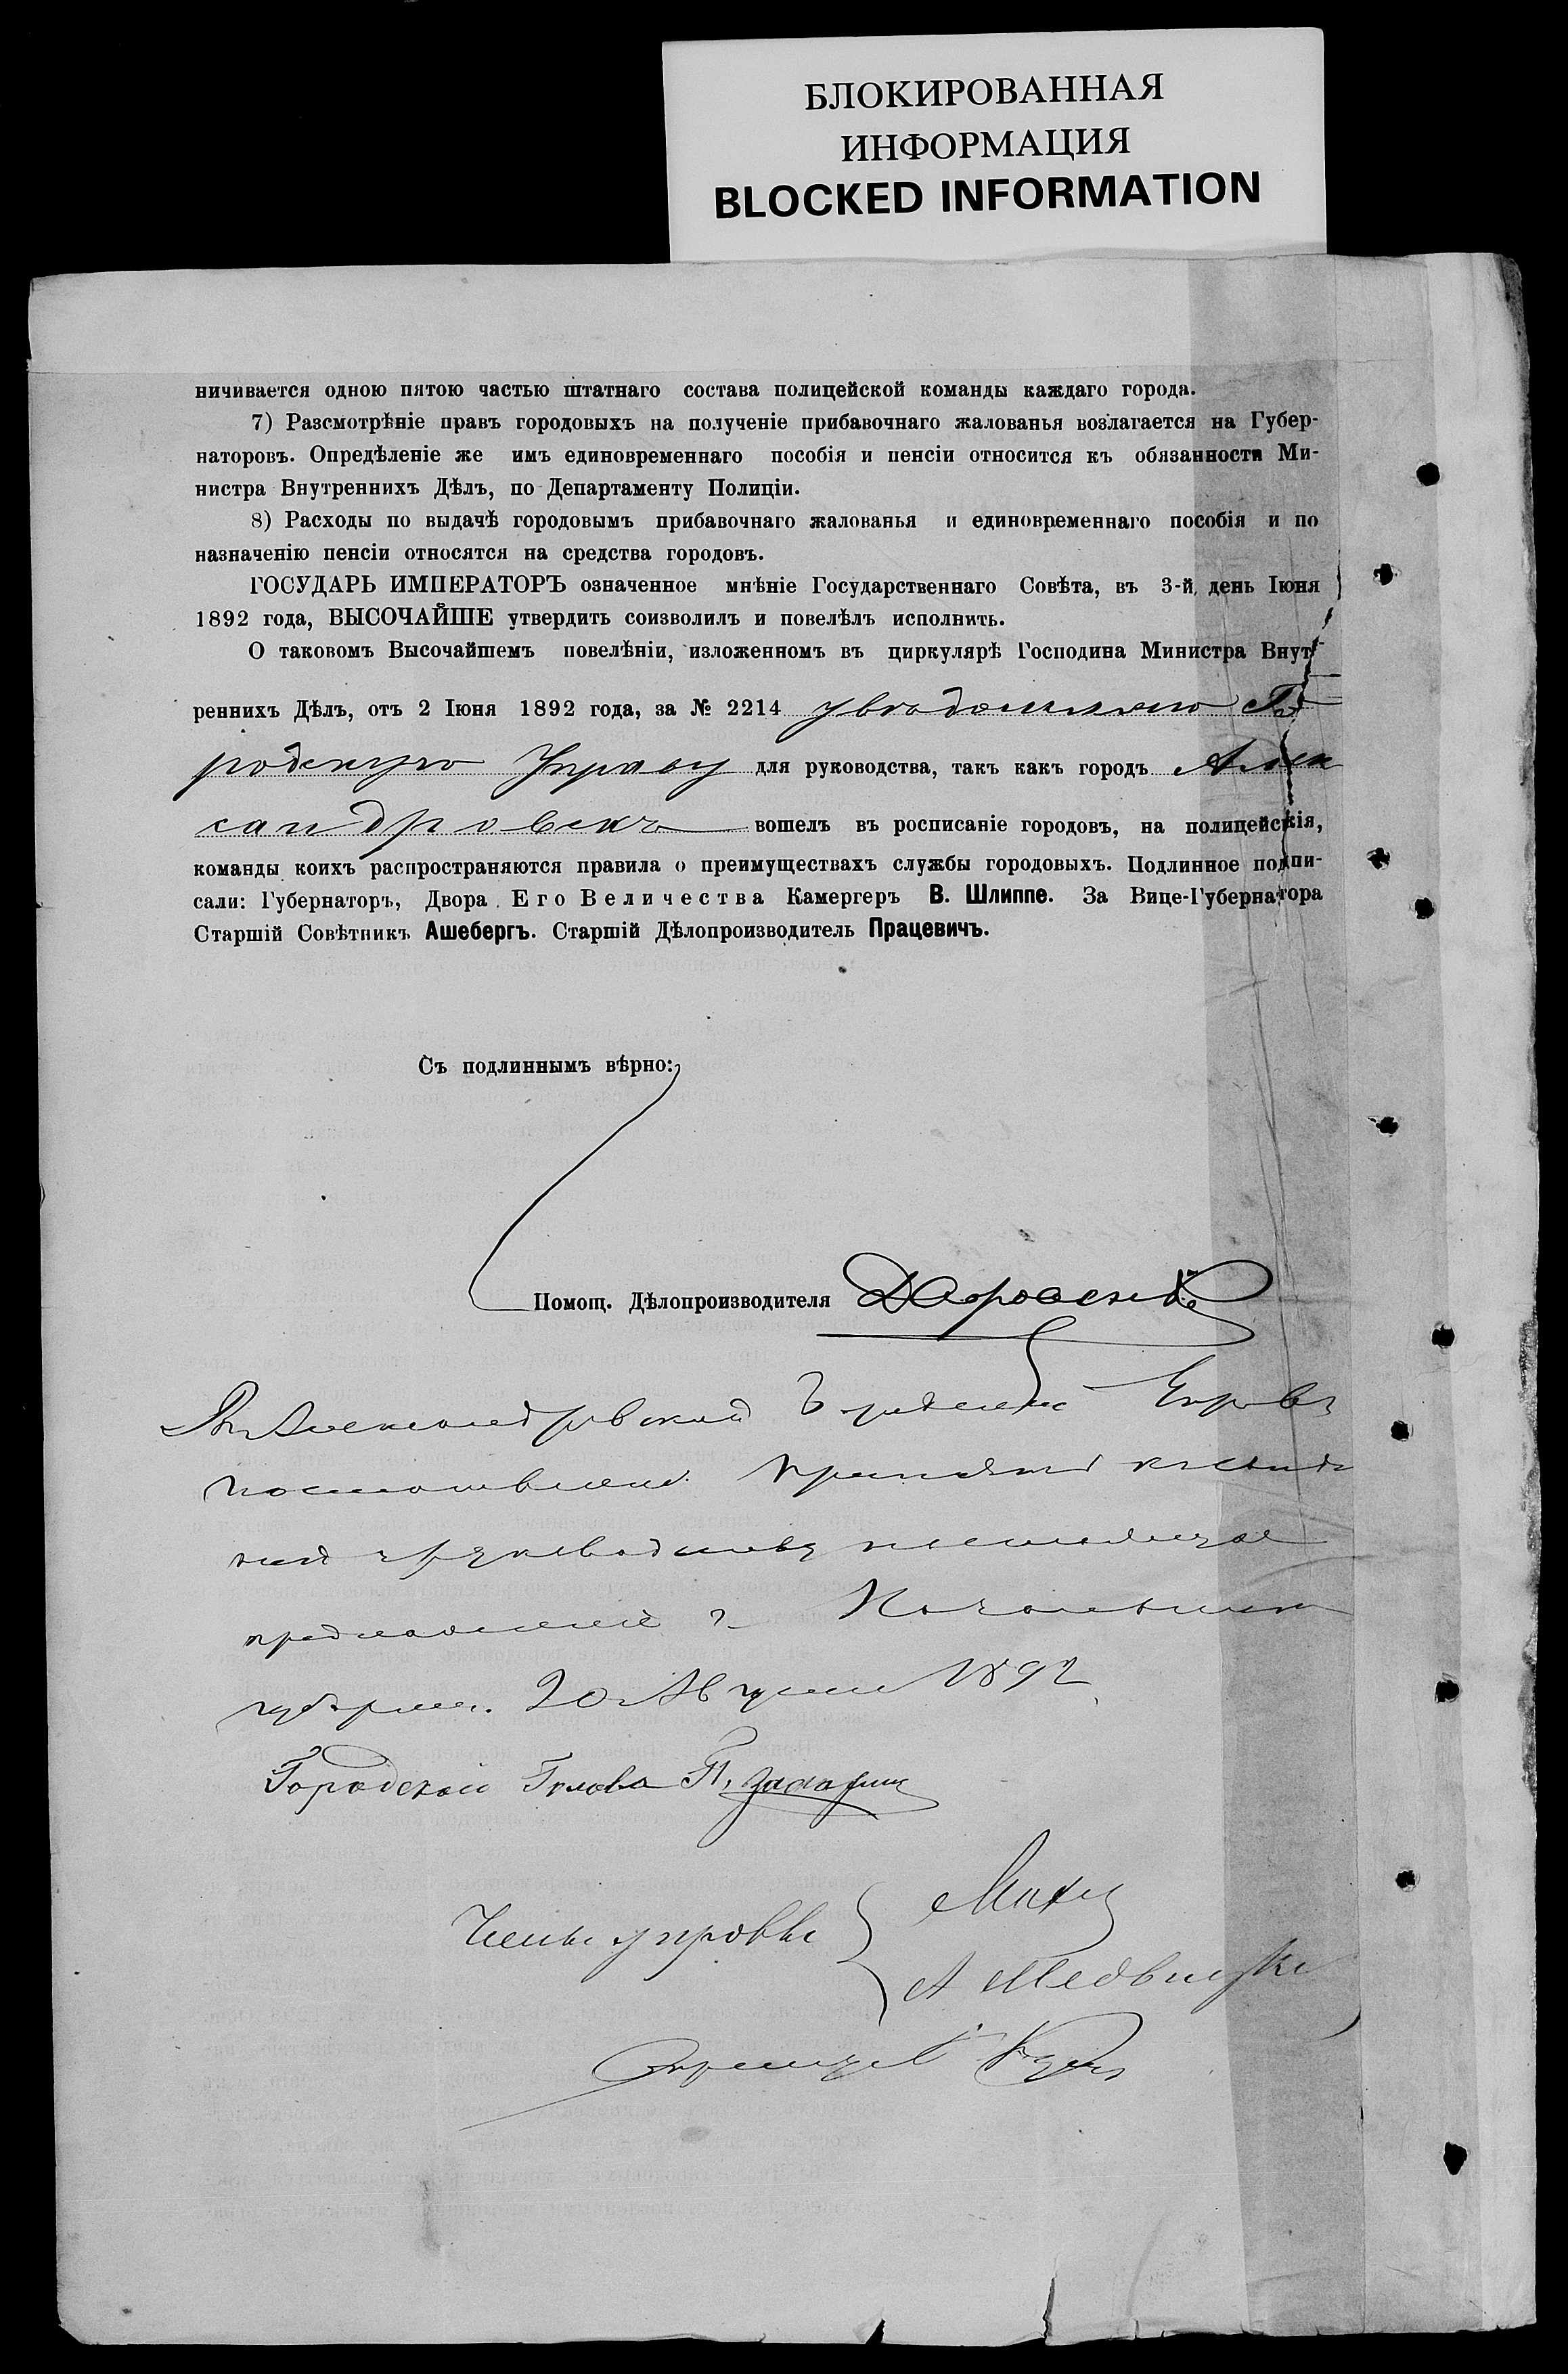 БЛОКИРОВАННАЯ
ИНФОРМАЦИЯ
BLOCKED INFORMATION
ничивается одною пятою частью штатнаго состава полицейской команды каждаго города.
7) Разсмотрѣніе правъ городовыхъ на полученіе прибавочнаго жалованья возлагается на Губер-
наторовъ. Опредѣленіе же имъ единовременнаго пособія и пенсіи относится къ обязанности Ми-
нистра Внутреннихъ Дѣлъ, по Департаменту Полиціи.
8) Расходы по выдачѣ городовымъ прибавочнаго жалованья и единовременнаго пособія и по
назначенію пенсіи относятся на средства городовъ.
ГОСУДАРЬ ИМПЕРАТОРЪ означенное мнѣніе Государственнаго Совѣта, въ 3-й день Іюня
1892 года, ВЫСОЧАЙШЕ утвердить соизволилъ и повелѣлъ исполнить.
О таковомъ Высочайшемъ повелѣніи, изложенномъ въ циркулярѣ Господина Министра Внут-
реннихъ Дѣлъ, отъ 2 Іюня 1892 года, за № 2214 увѣдомляю Го
родскую Управу для руководства, такъ какъ городъ Алек
сандровскъ вошелъ въ росписаніе городовъ, на полицейскія,
команды коихъ распространяются правила о преимуществахъ службы городовыхъ. Подлинное подпи-
сали: Губернаторъ, Двора Его Величества Камергеръ В. Шлиппе. За Вице-Губернатора
Старшій Совѣтникъ Ашебергъ. Старшій Дѣлопроизводитель Працевичъ.
Съ подлиннымъ вѣрно:
Помощ. Дѣлопроизводителя
Въ Александровской Городской Управѣ
постановлено принять къ свѣдѣ
нію и руководству настоящее
предложеніе г. Начальника
губерніи. 20 Августа 1892
Городской Голова П. Захарин
Члены управы
А Медвѣдко
Секретарь